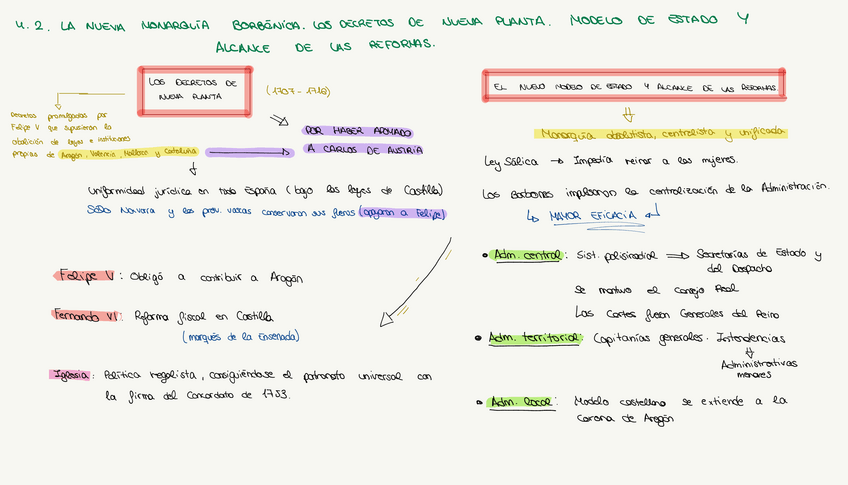 4.2. LA NUEVA MONARQUÍA BORBÓNICA. LOS DECRETOS DE NUEVA PLANTA. MODELO DE ESTADO Y
ALCANCE DE LAS REFORMAS.
LOS DECRETOS DE
NUEVA PLANTA
(1707-1716)
Decretos promulgados por
Felipe V que supusieron la
abolición de leyes e instituciones
propias de Aragón, Valencia, Mallorca y Cataluña
POR HABER APOYADO
A CARLOS DE AUSTRIA
Uniformidad jurídica en toda España (bajo las leyes de Castilla)
Sólo Navarra y las prov. vascas conservaron sus fueros (apoyaron a Felipe)
Felipe V: Obligó a contribuir a Aragón
Fernando VI: Reforma fiscal en Castilla
(marqués de la Ensenada)
Iglesia: Política regalista, consiguiéndose el patronato universal con
la firma del Concordato de 1753.
EL NUEVO MODELO DE ESTADO Y ALCANCE DE LAS REFORMAS
Monarquía absolutista, centralista y unificada
Ley Sálica → Impedía reinar a las mujeres.
Los Borbones impulsaron la centralización de la Administración.
↳ MAYOR EFICACIA ↲
• Adm. central: Sist. polisinodial ⇒ Secretarías de Estado y
del Despacho
Se mantuvo el Consejo Real
Las Cortes fueron Generales del Reino
• Adm. territorial: Capitanías generales. Intendencias
Administrativas
menores
• Adm. local: Modelo castellano se extiende a la
Corona de Aragón